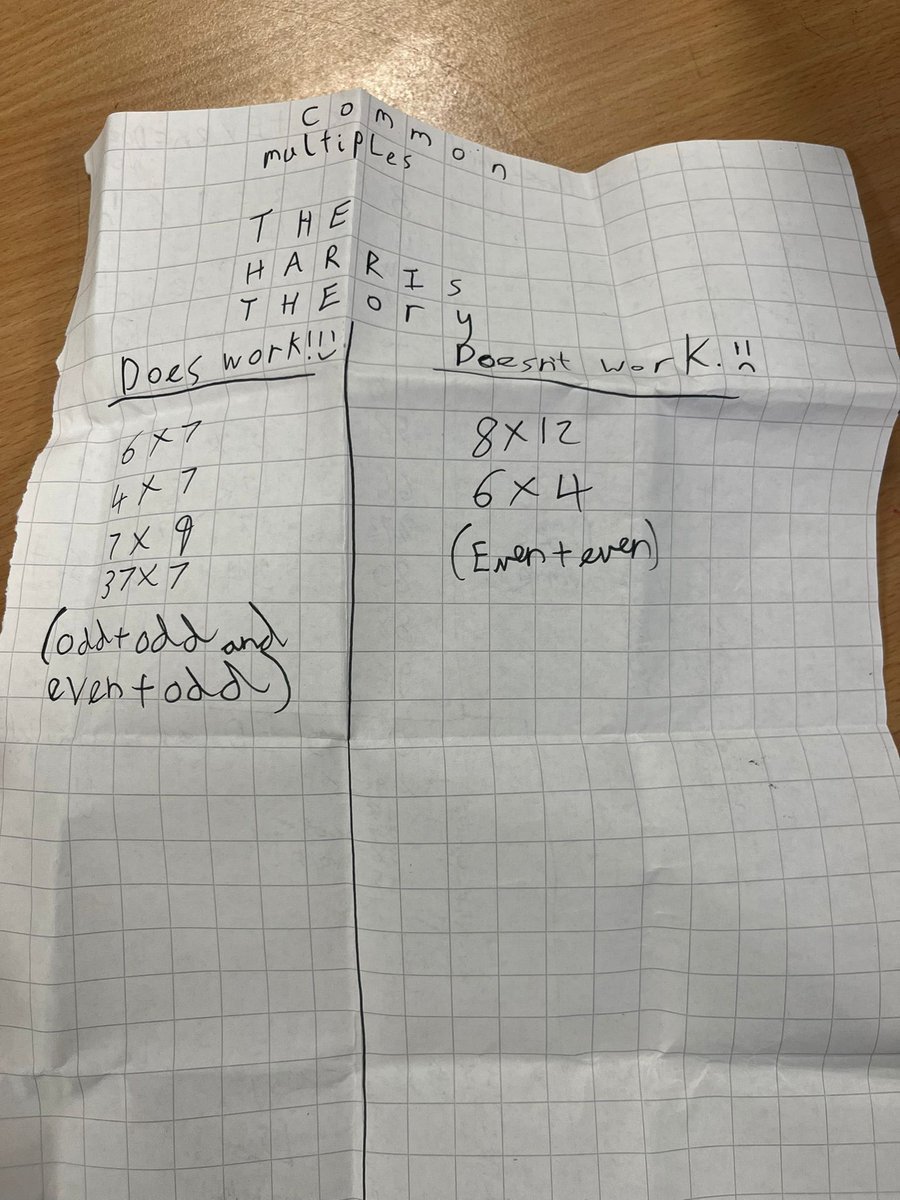 Common
multiples
THE
HARRIS
THEory
Does work!!!
6 x 7
4 x 7
7 x 9
37 x 7
(odd+odd and
even+odd)
Doesn't work.!!
8 x 12
6 x 4
(Even+even)